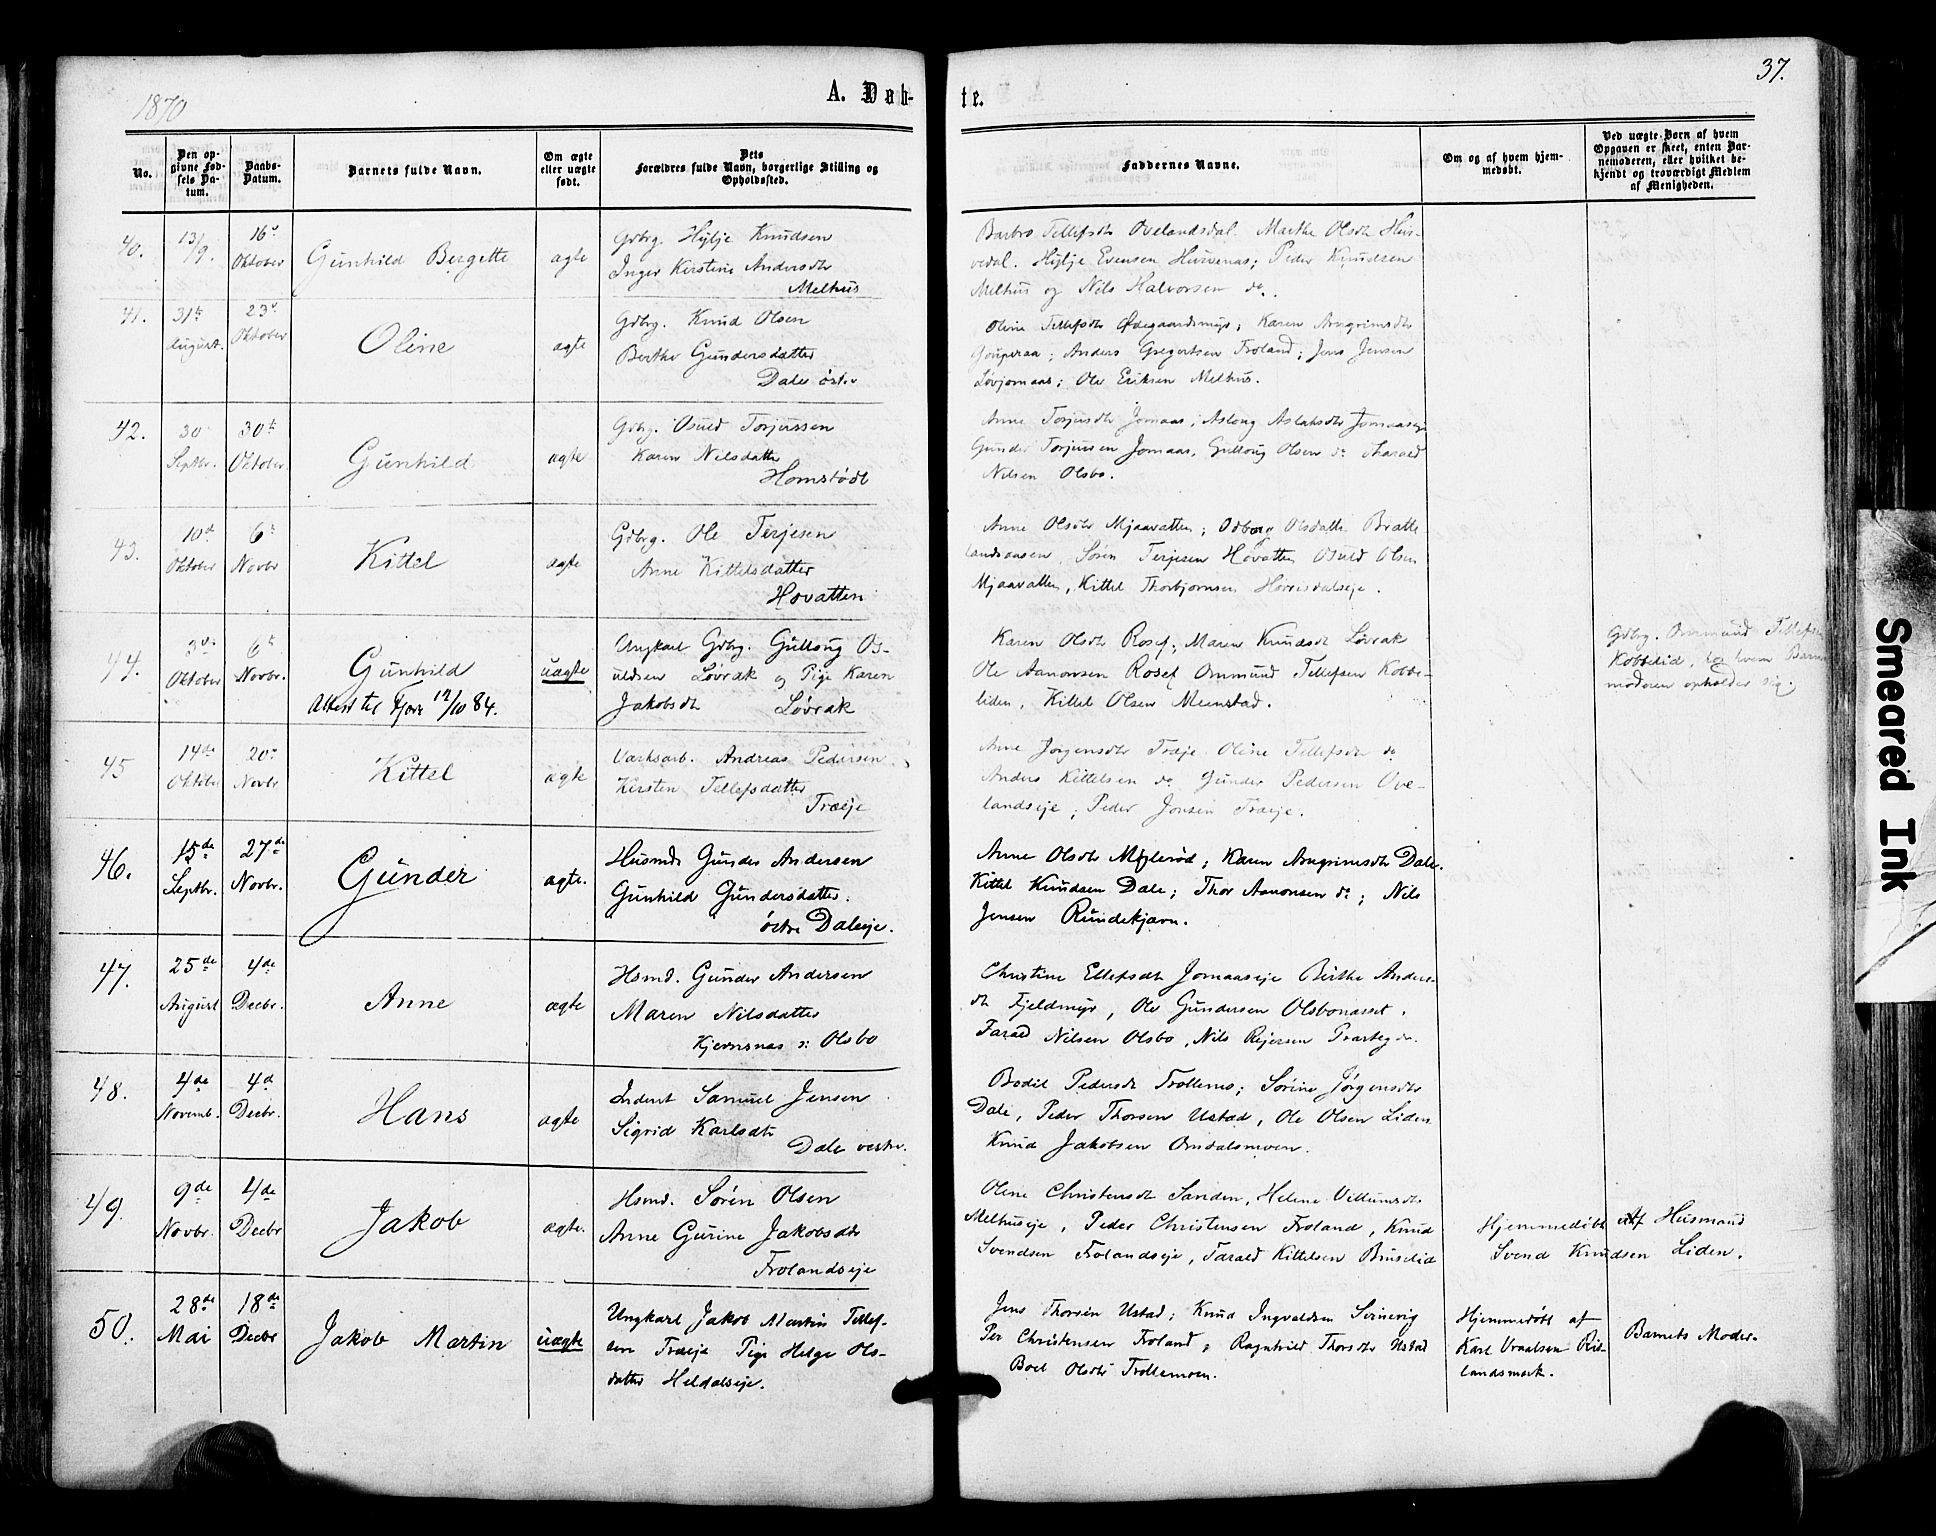 1870
A. Døb-
te.
37.
No.
Den op-
givne Fød-
sels Da-
tum.
Daabs-
Datum.
Barnets fulde Navn.
Om ægte
eller uægte
født.
Dets
Forældres fulde Navn, borgerlige Stilling og
Opholdssted.
Faddernes Navne.
Om og af hvem hjem-
medøbt.
Ved uægte Børn af hvem
Opgaven er skeet, enten Bar-
nemoderen, eller hvilket be-
kjendt og troværdigt Medlem
af Menigheden.
40.
13/9.
16d
Oktober
Gunhild Bergette
ægte
Gdbrg. Hylje Knudsen
Inger Kerstine Andersdtr
Melhus
Barbro Tellefsdtr Ovelandsdal. Marthe Olsdtr
Hylje Evensen Peder Knudsen
Melhus og Nils Halvorsen do.
41.
31te
August.
23d
Oktober
Oline
ægte
Gdbrg. Knud Olsen
Berthe Gundersdatter
Dale østre
Oline Tellefsdtr Ødegaardsmyr; Karen Arngrimsdtr
Anders Gregertsen Froland; Jens Jensen
Løvjomaas; Ole Eriksen Melhus.
42.
30
Septbr.
30te
Oktober
Gunhild
ægte
Gdbrg. Osuld Torjussen
Karen Nilsdatter
Homstødt
Anne Torjusdtr Jomaas; Aslaug Aslaksdtr Jomaaseje
Gunder Torjussen Jomaas, Gulloug Olsen do Tharald
Nilsen Olsbo.
43.
10d
Oktober
6te
Novbr
Kittel
ægte
Gdbrg. Ole Terjesen
Anne Kittelsdatter
Høvatten
Anne Olsdtr Mjaavatten; Odborg Olsdatter Bratte
landsaasen, Søren Terjesen Høvatten Osuld Olsen
Mjaavatten, Kittel Thorbjørnsen
44.
3die
Oktober
6te
Novbr.
Gunhild
Attest til Fjære 12/10 84.
uægte
Ungkarl Gdbrg. Gulloug Os-
uldsen Løvrak og Pige Karen
Jakobsdt Løvrak
Karen Olsdtr Rosef; Maren Knudsdt Løvrak
Ole Aanonsen Rosef Ommund Tellefsen Kobbe-
liden, Kittel Olsen Meenstad.
Gdbrg. Ommund Tellefsen
Kobbelid, hos hvem Barne
moderen opholder sig.
45
14de
Oktober
20de
Novbr
Kittel
ægte
Værksarb. Andreas Pedersen
Kirsten Tellefsdatter
Træeje
Anne Jørgensdtr Træje. Oline Tellefsdtr do
Anders Kittelsen do Gunder Pedersen Ove-
landseje; Peder Jonsen Træeje.
46.
15de
Septbr.
27de
Novbr.
Gunder
ægte.
Husmd Gunder Andersen
Gunhild Gundersdatter.
østre Daleeje.
Anne Olsdtr Myklerød; Karen Arngrimsdtr Dale.
Kittel Knudsen Dale; Thor Aanonsen do; Nils
Jensen Rundekjærn.
47.
25de
August
4de
Decbr.
Anne
ægte
Hsmd. Gunder Andersen
Maren Nilsdatter
Kjernsnæs v: Olsbo
Christine Ellefsdt Jomaaseje Birthe Anders-
dt Fjeldmyr, Ole Gundersen Olsbonæsset.
Tarald Nilsen Olsbo, Nils Rejersen Præstegdn.
48.
4de
Novemb.
4d
Decbr.
Hans
ægte
Inderst Samuel Jensen
Sigrid Karlsdtr
Dale vestre.
Bodil Pedersdt Trollemo; Sørine Jørgensdtr
Dale, Peder Thorsen Ustad, Ole Olsen Liden
Knud Jakobsen Omdalsmoen.
49.
9de
Novbr.
4de
Decbr
Jakob
ægte.
Hsmd. Søren Olsen
Anne Gurine Jakobsdtr
Frolandseje
Oline Christensdt Sanden, Helene Villumsdtr
Melhuseje, Peder Christensen Froland, Knud
Svendsen Frolandseje, Tarald Kittelsen Buselid
Hjemmedøbt af Husmand
Svend Knudsen Liden.
50.
28de
Mai
18de
Decbr
Jakob Martin
uægte
Ungkarl Jakob Martin Tellef-
sen Træeje Pige Helge Ols-
datter Heldalseje.
Jens Thorsen Ustad; Knud Ingvaldsen Svinevig
Per Christensen Froland, Ragnhild Thorsdtr Ustad
Boel Olsdtr Trollemoen.
Hjemmedøbt af
Karl Vraalsen Ris-
landsmark.
Barnets Moder.
Smeared Ink